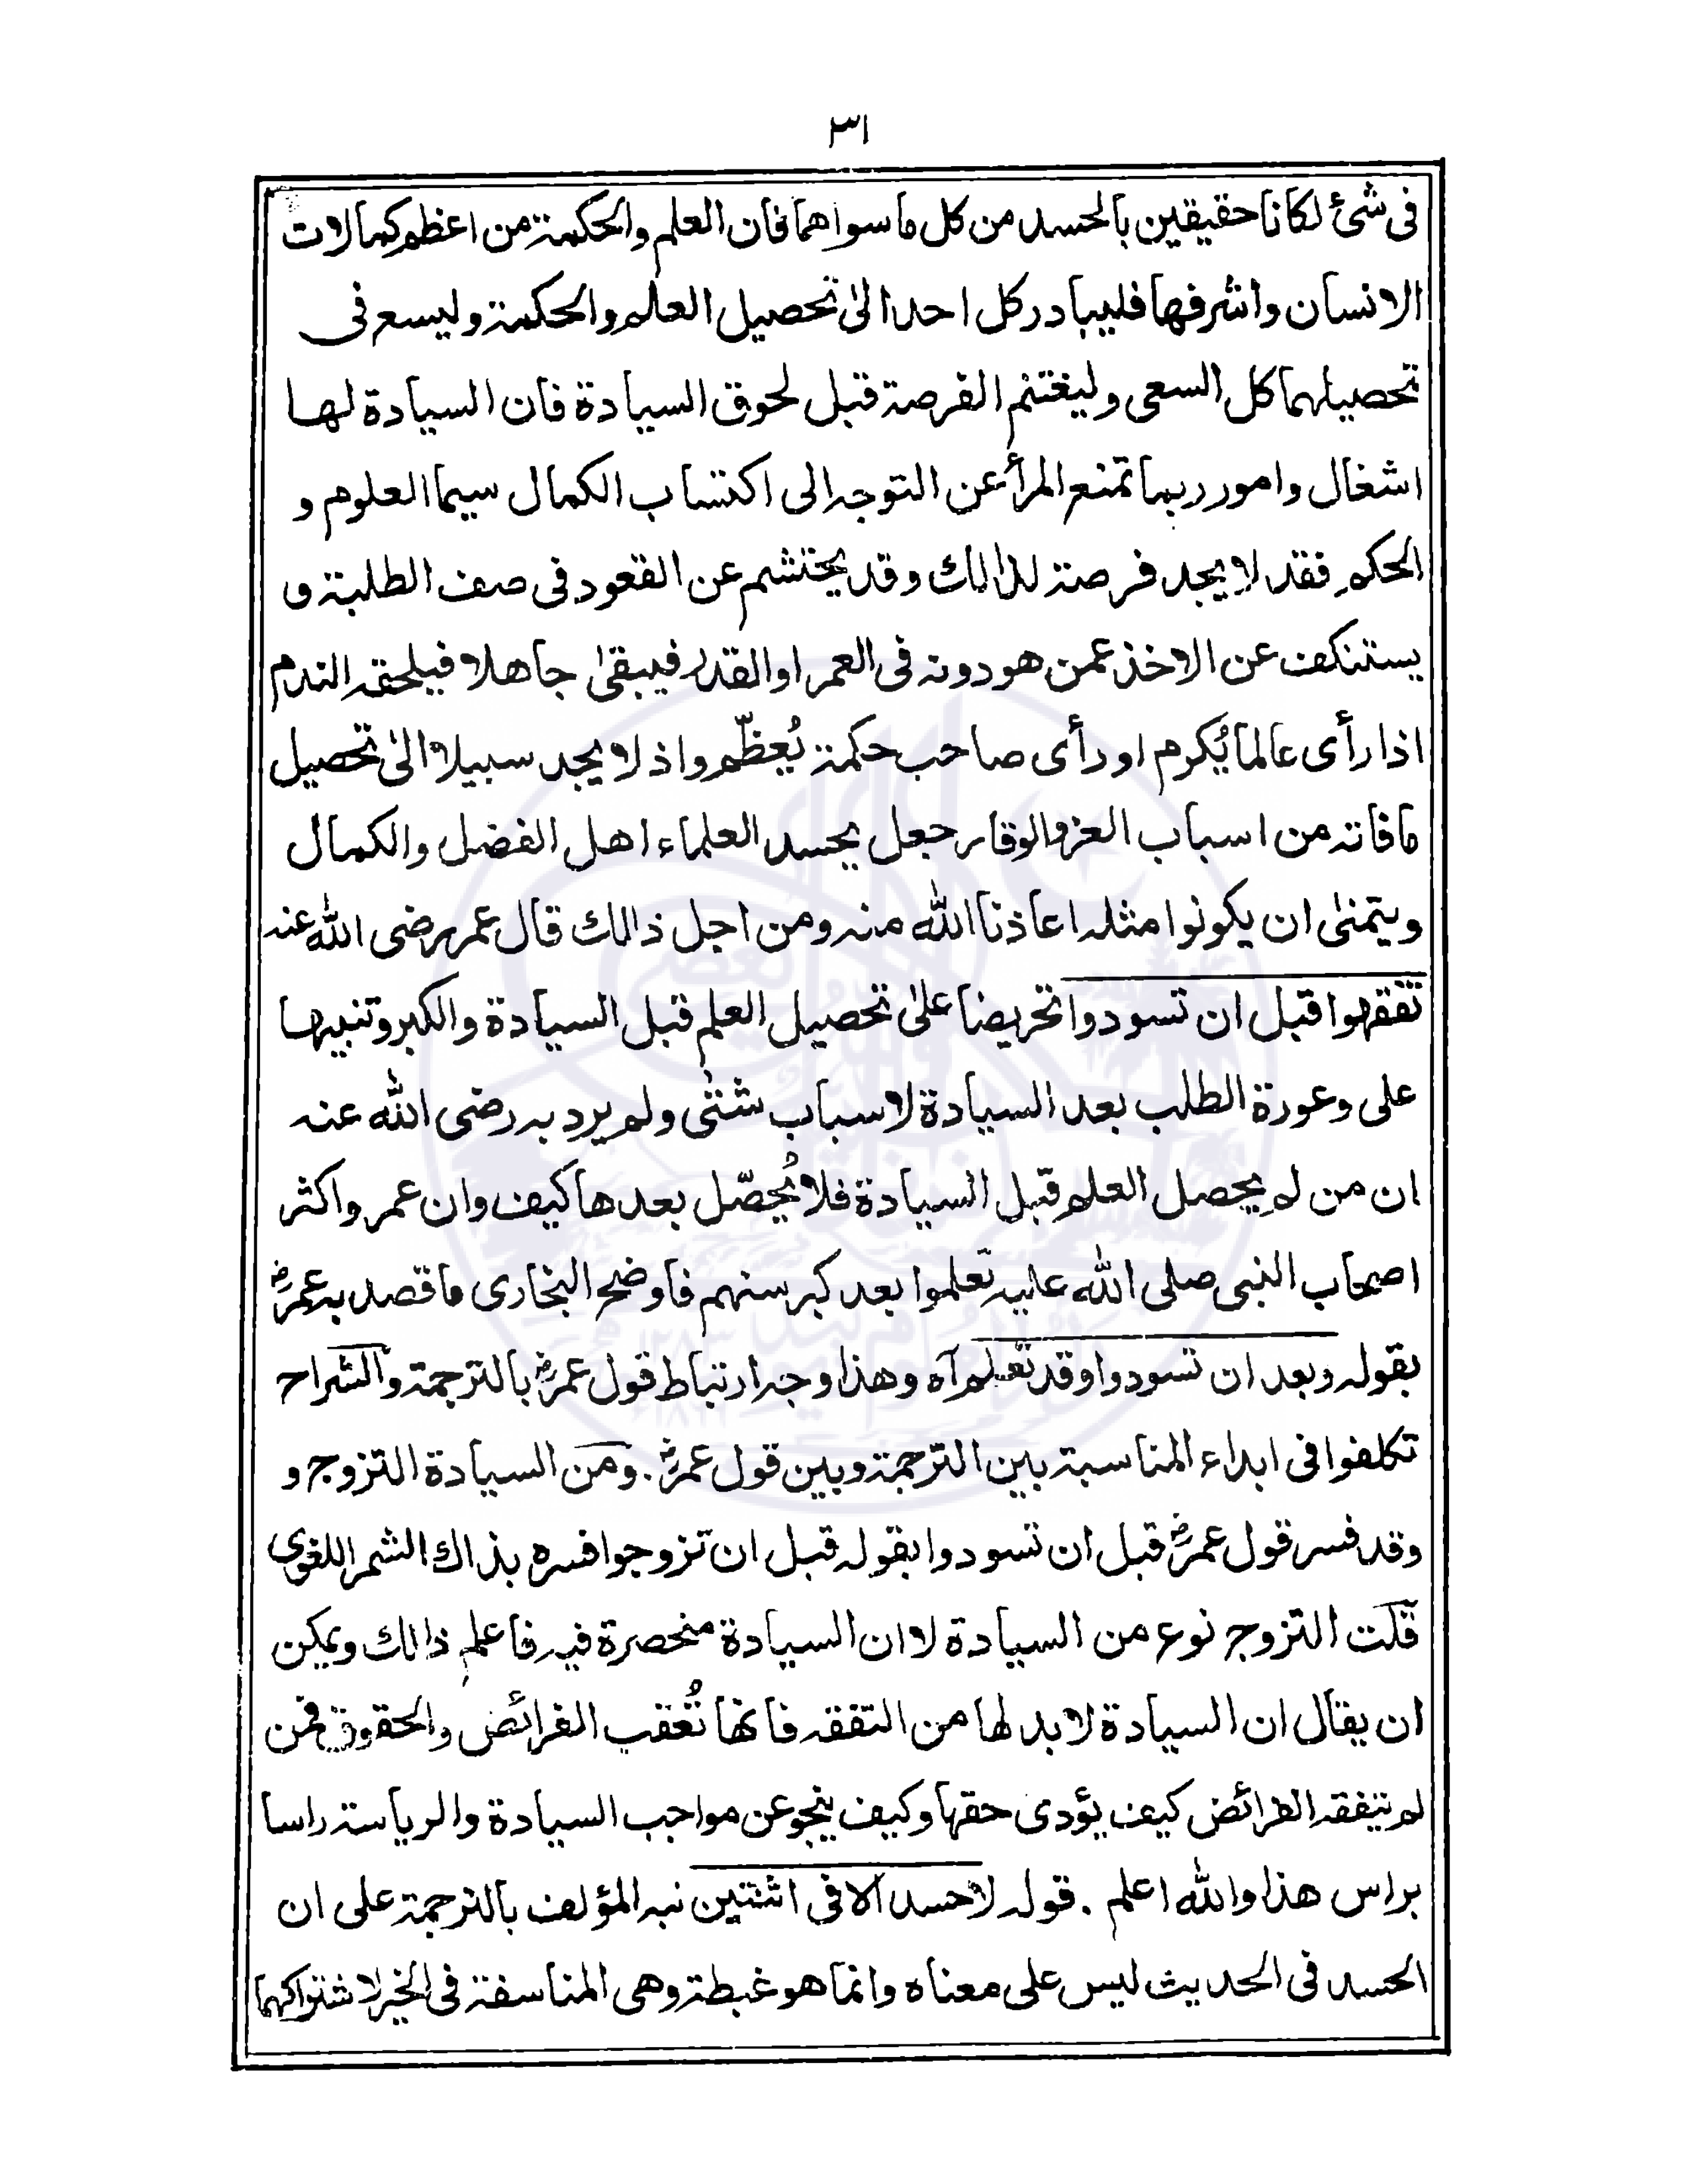 ٣١
فى شئ لكانا حقيقين بالحسد من كل ما سواهما فان العلم والحكمة من اعظم كمالات
الانسان واشرفها فليبادر كل احد الىٰ تحصيل العلم والحكمة وليسع فى
تحصيلهما كل السعى وليغتنم الفرصة قبل لحوق السيادة فان السيادة لها
اشغال وامور ربما تمنع المرأ عن التوجه الى اكتساب الكمال سيما العلوم و
الحكم فقد لا يجد فرصة لذالك وقد يختشم عن القعود فى صف الطلبة و
يستنكف عن الاخذ عمن هو دونه فى العمر او القدر فيبقىٰ جاهلا فيلحقه الندم
اذا رأى عالما يُكرم او رأى صاحب حكمة يُعظّم واذ لا يجد سبيلا الىٰ تحصيل
ما فاته من اسباب العز والوقار جعل يحسد العلماء اهل الفضل والكمال
ويتمنىٰ ان يكونوا مثله اعاذنا الله منه ومن اجل ذالك قال عمر رضى الله عنه
تفقهوا قبل ان تسودوا تحريضا علىٰ تحصيل العلم قبل السيادة والكبر وتنبيها
على وعورة الطلب بعد السيادة لاسباب شتىٰ ولم يرد به رضى الله عنه
ان من لم يحصل العلم قبل السيادة فلا يُحصّل بعدها كيف وان عمر واكثر
اصحاب النبى صلى الله عليه تعلموا بعد كبر سنهم فاوضح البخارى ما قصد به عمرؓ
بقوله وبعد ان تسودوا وقد تعلم آه وهذا وجه ارتباط قول عمرؓ بالترجمة والشراح
تكلفوا فى ابداء المناسبة بين الترجمة وبين قول عمرؓ. ومن السيادة التزوج و
وقد فسر قول عمرؓ قبل ان تسودوا بقوله قبل ان تزوجوا فسره بذاك الشمر اللغوى
قلت التزوج نوع من السيادة لا ان السيادة منحصرة فيه فاعلم ذالك ويمكن
ان يقال ان السيادة لا بد لها من التفقه فانها تُعقب الفرائض والحقوق فمن
لم يتفقه الفرائض كيف يؤدى حقها وكيف ينجو عن مواجب السيادة والرياسة راسا
براس هذا والله اعلم . قوله لاحسد الا فى اثنتين نبه المؤلف بالترجمة على ان
الحسد فى الحديث ليس على معناه وانما هو غبطة وهى المنافسة فى الخير لاشتراكهما